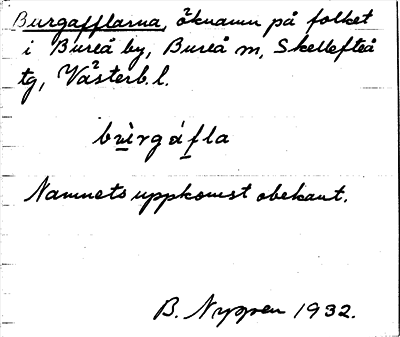 Burgafflarna, öknamn på folket
i Bureå by, Bureå m, Skellefteå
tg, Västerb. l.
bùrgáfla
Namnets uppkomst obekant.
B. Nyppen 1932.